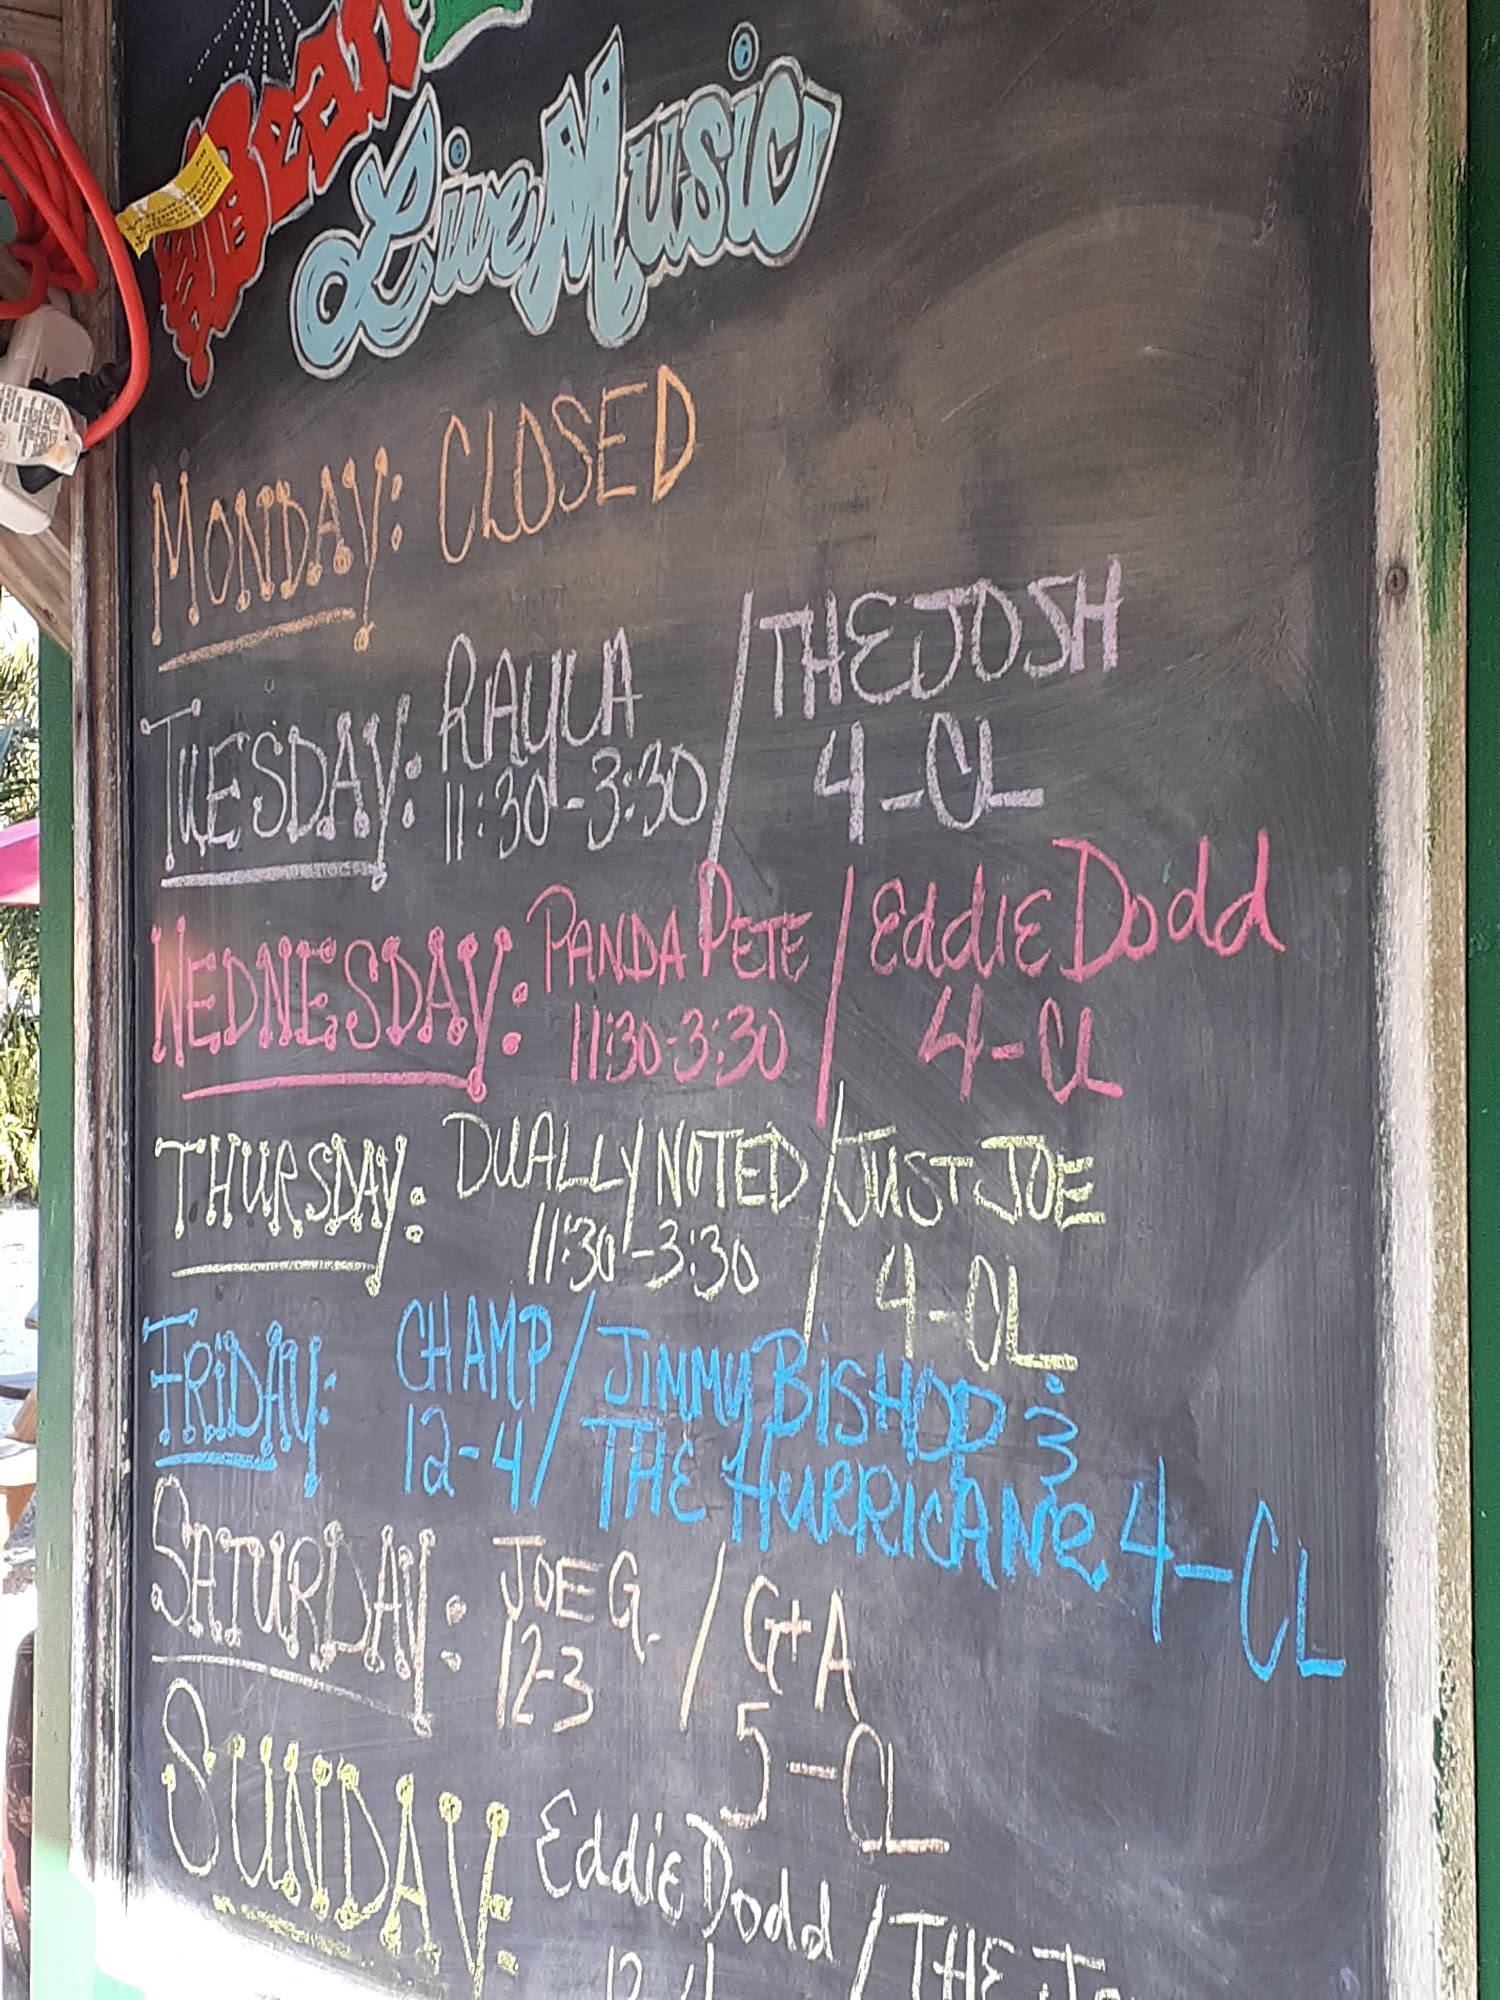 Bean
Live Music
MONDAY: CLOSED
TUESDAY: RAYLA / THE JOSH
11:30-3:30 4-CL
WEDNESDAY: PANDA PETE / Eddie Dodd
11:30-3:30 4-CL
THURSDAY: DUALLY NOTED / JUST JOE
11:30-3:30 4-CL
FRIDAY: CHAMP / JIMMY BISHOP &
12-4 THE HURRICANE 4-CL
SATURDAY: JOE G. / G+A
12-3 5-CL
SUNDAY: Eddie Dodd / THE
12-4